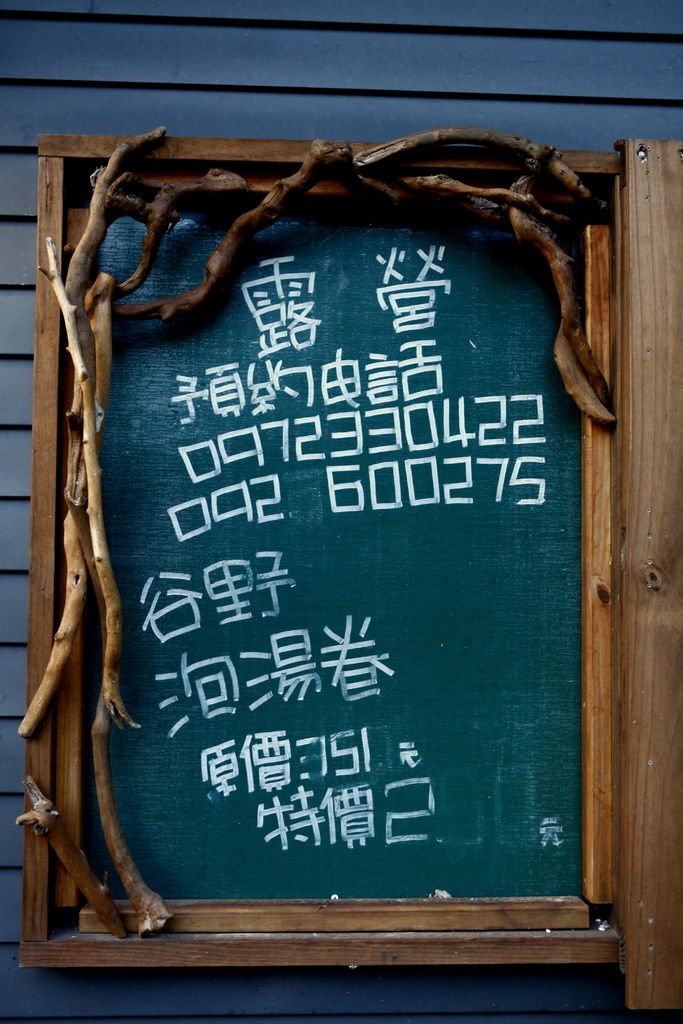 露 營
預約电話
0972330422
092 600275
谷野
泡湯卷
原價:351元
特價2 元